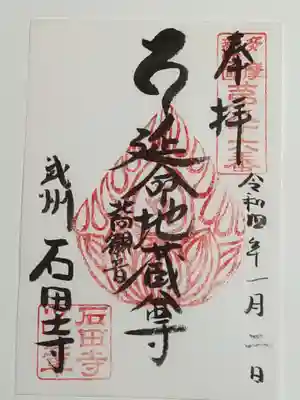 奉拝
令和四年一月二日
延命地蔵尊
武州 石田寺
石田寺